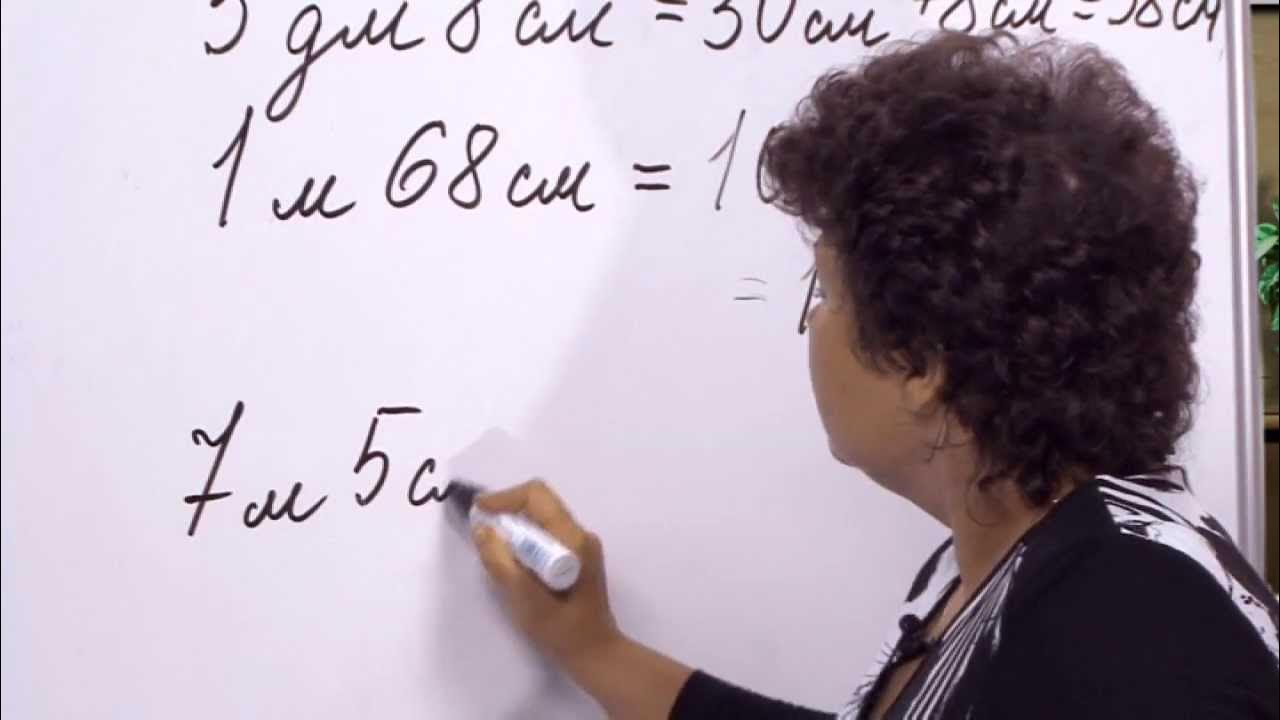 3 дм 8 см = 30 см + 8 см = 38 см
1 м 68 см = 1
= 1
7 м 5 см